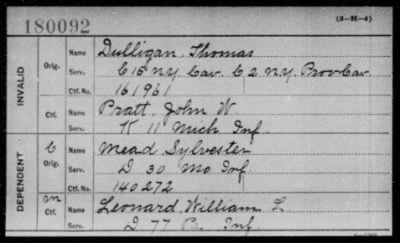 180092
(3-H-4)
INVALID
Orig. Name Dulligan, Thomas
Serv. C 15 N.Y. Cav. C 2 N.Y. Prov Cav.
Ctf. No. 161961
Ctf. Name Pratt, John W
Serv. K 11 Mich Inf.
DEPENDENT
C Orig. Name Mead, Sylvester
Serv. D 30 Mo Inf.
Ctf. No. 140272
m Ctf. Name Leonard, William L
Serv. D 77 Pa. Inf.